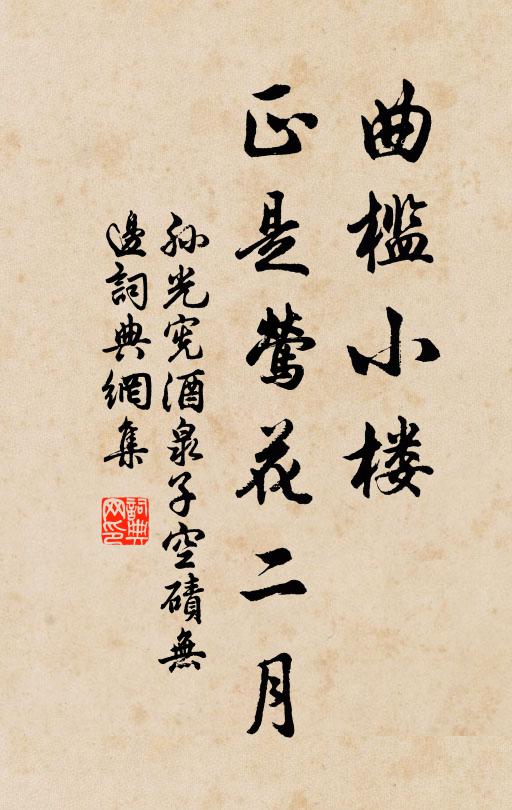 曲檻小楼
正是莺花二月
孙光宪酒泉子空碛無
邊詞典網集
詞典
网印